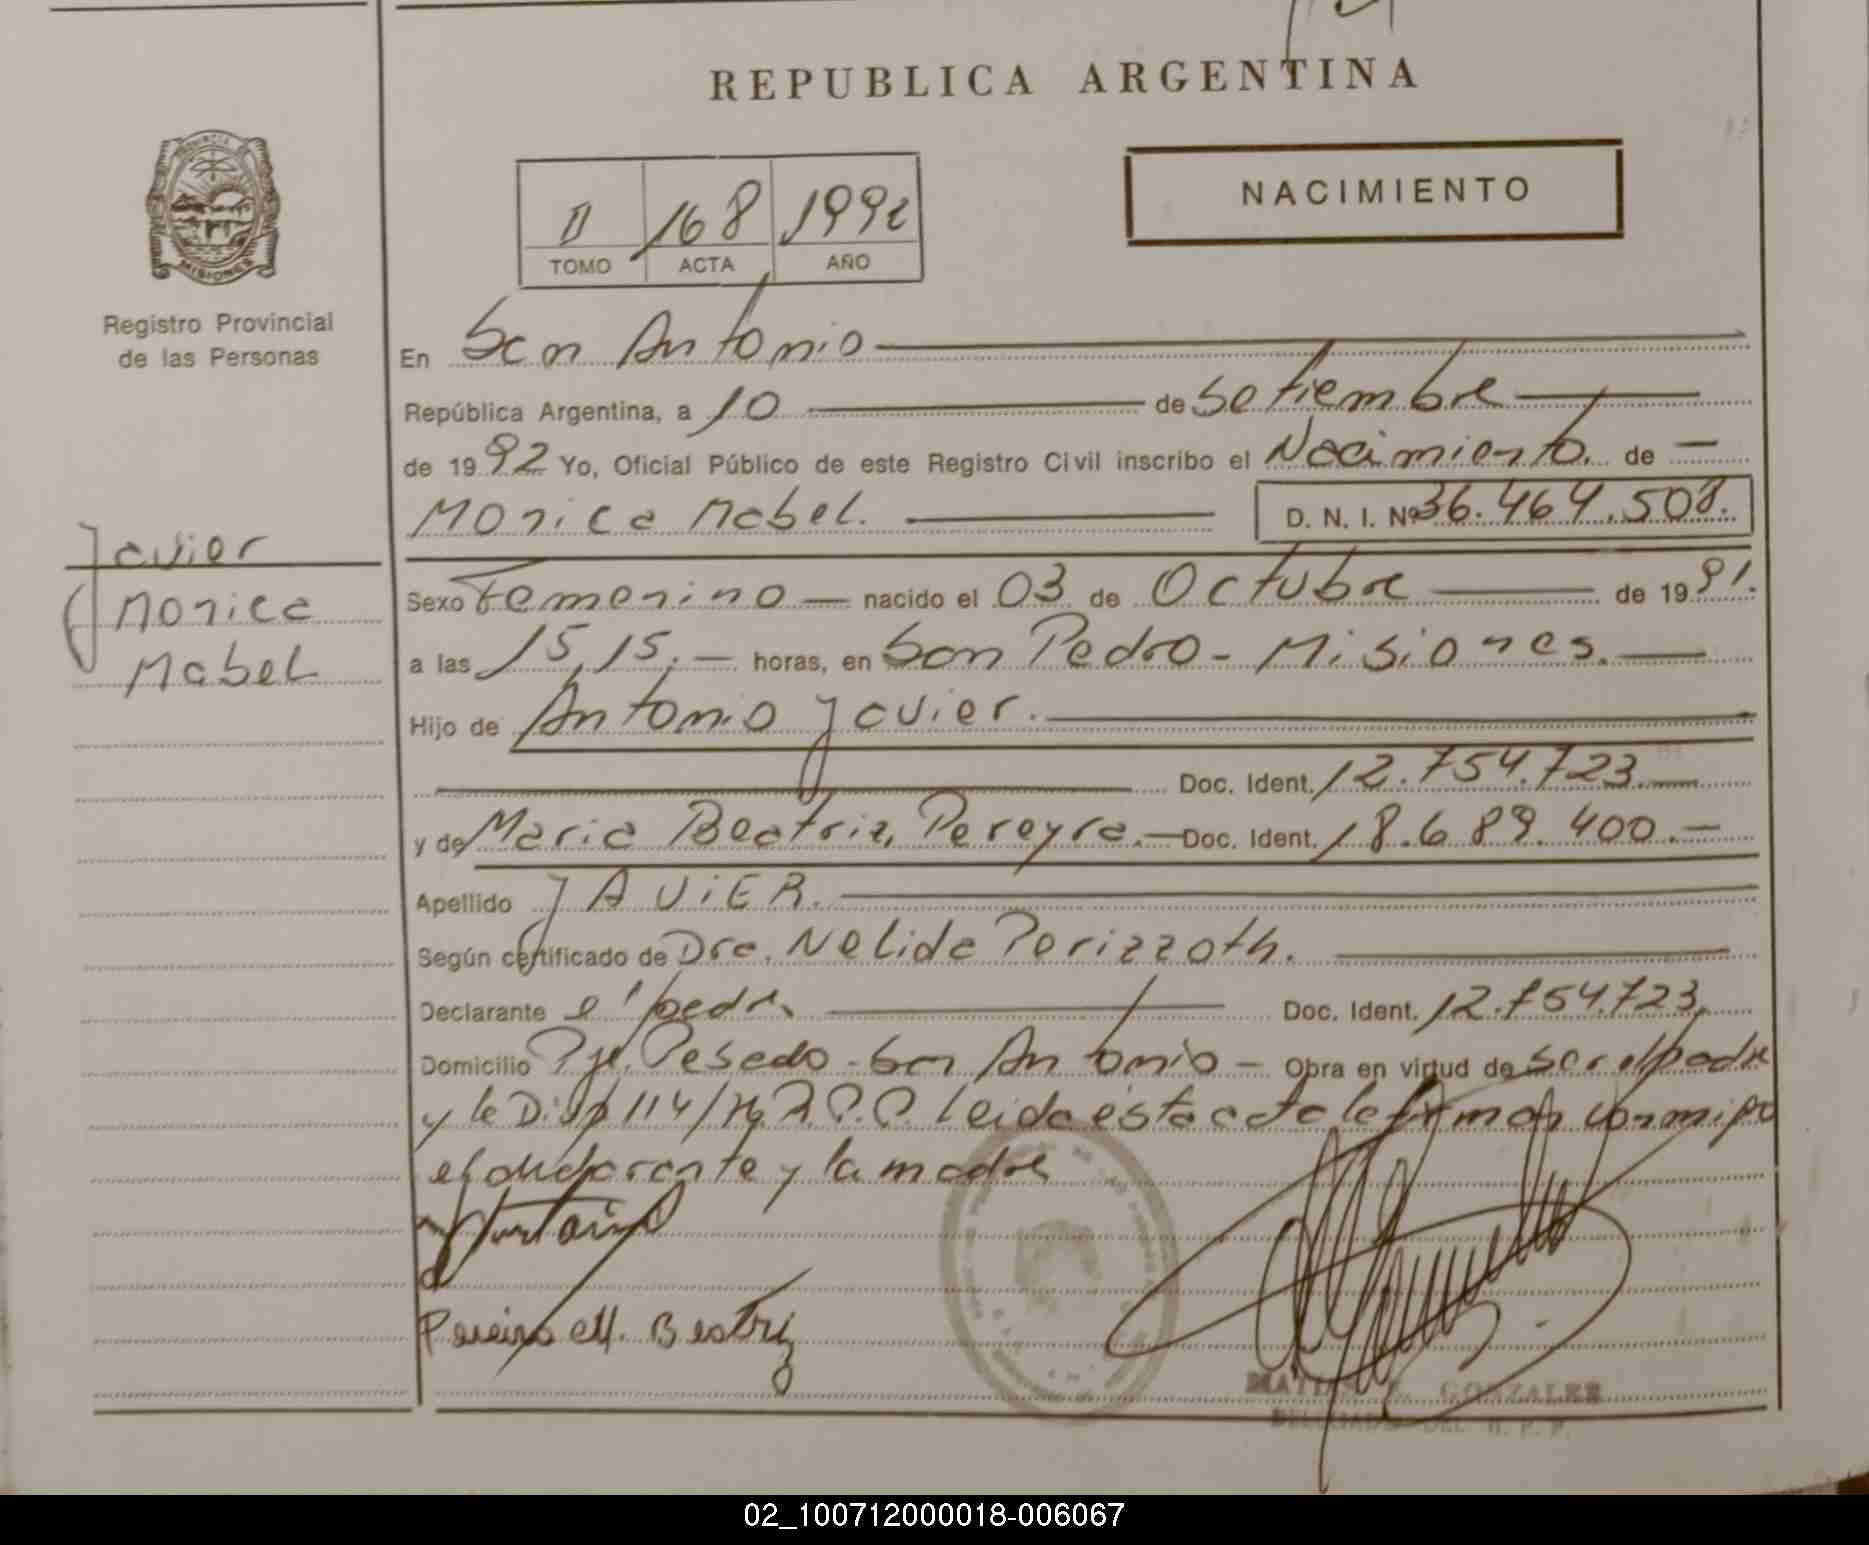 REPUBLICA ARGENTINA
PROVINCIA DE
MISIONES
Registro Provincial
de las Personas
NACIMIENTO
D 168 1992
TOMO ACTA AÑO
En San Antonio
República Argentina, a 10 de Setiembre
de 1992 Yo, Oficial Público de este Registro Civil inscribo el Nacimiento. de
Monica Mabel. D. N. I. Nº 36.464.508.
Javier
Monica
Mabel
Sexo Femenino nacido el 03 de Octubre de 1991.
a las 15,15. horas, en San Pedro - Misiones.
Hijo de Antonio Javier.
Doc. Ident. 12.754.723.
y de Maria Beatriz Pereyra. Doc. Ident. 18.689.400.
Apellido JAViER.
Según certificado de Dra. Nelida Perizzoth.
Declarante el padre Doc. Ident. 12.754.723.
Domicilio Pje. Pesado - San Antonio - Obra en virtud de ser el padre
y la Disp 114/76 R.P.P. Leida esta acta la firman conmigo
el declarante y la madre
Pereira M. Beatriz
MATIAS GONZALEZ
DELEGADO DEL R. P. P.
02_100712000018-006067